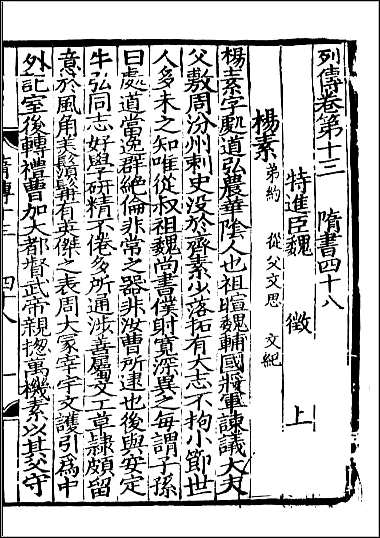 列傳卷第十三　隋書四十八
特進臣魏　徵　上
楊素　弟約　從父文思　文紀
楊素字處道弘農華陰人也祖暄魏輔國將軍諫議大夫
父敷周汾州刺史没於齊素少落拓有大志不拘小節世
人多未之知唯從叔祖魏尚書僕射寬深異之每謂子孫
曰處道當逸群絕倫非常之器非汝曹所逮也後與安定
牛弘同志好學研精不倦多所通涉善屬文工草隷頗留
意於風角美鬚髯有英傑之表周大冢宰宇文護引為中
外記室後轉禮曹加大都督武帝親揔萬機素以其父守
隋傳十三　四十八